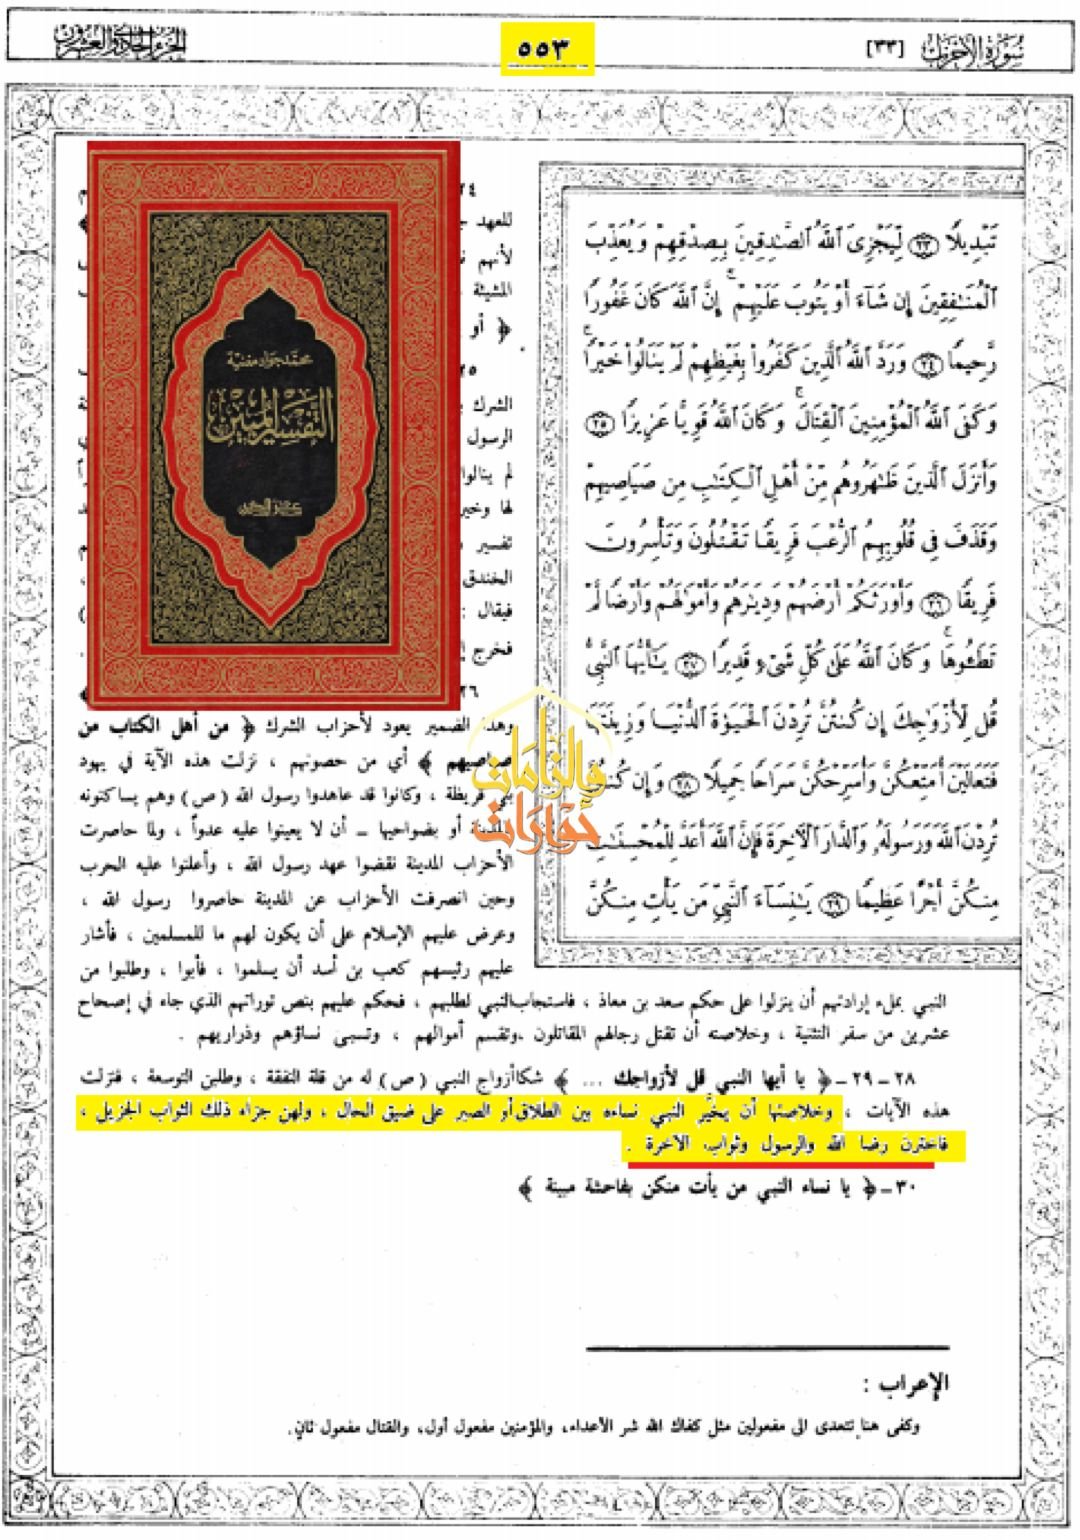 سورة الأحزاب [٣٣]
٥٥٣
الجزء الحادي والعشرون
تَبْدِيلًا ٢٣ لِّيَجْزِيَ ٱللَّهُ ٱلصَّٰدِقِينَ بِصِدْقِهِمْ وَيُعَذِّبَ
ٱلْمُنَٰفِقِينَ إِن شَآءَ أَوْ يَتُوبَ عَلَيْهِمْ ۚ إِنَّ ٱللَّهَ كَانَ غَفُورًا
رَّحِيمًا ٢٤ وَرَدَّ ٱللَّهُ ٱلَّذِينَ كَفَرُوا۟ بِغَيْظِهِمْ لَمْ يَنَالُوا۟ خَيْرًا ۚ
وَكَفَى ٱللَّهُ ٱلْمُؤْمِنِينَ ٱلْقِتَالَ ۚ وَكَانَ ٱللَّهُ قَوِيًّا عَزِيزًا ٢٥
وَأَنزَلَ ٱلَّذِينَ ظَٰهَرُوهُم مِّنْ أَهْلِ ٱلْكِتَٰبِ مِن صَيَاصِيهِمْ
وَقَذَفَ فِى قُلُوبِهِمُ ٱلرُّعْبَ فَرِيقًا تَقْتُلُونَ وَتَأْسِرُونَ
فَرِيقًا ٢٦ وَأَوْرَثَكُمْ أَرْضَهُمْ وَدِيَٰرَهُمْ وَأَمْوَٰلَهُمْ وَأَرْضًا لَّمْ
تَطَـُٔوهَا ۚ وَكَانَ ٱللَّهُ عَلَىٰ كُلِّ شَىْءٍ قَدِيرًا ٢٧ يَٰٓأَيُّهَا ٱلنَّبِىُّ
قُل لِّأَزْوَٰجِكَ إِن كُنتُنَّ تُرِدْنَ ٱلْحَيَوٰةَ ٱلدُّنْيَا وَزِينَتَهَا
فَتَعَالَيْنَ أُمَتِّعْكُنَّ وَأُسَرِّحْكُنَّ سَرَاحًا جَمِيلًا ٢٨ وَإِن كُنتُنَّ
تُرِدْنَ ٱللَّهَ وَرَسُولَهُۥ وَٱلدَّارَ ٱلْءَاخِرَةَ فَإِنَّ ٱللَّهَ أَعَدَّ لِلْمُحْسِنَٰتِ
مِنكُنَّ أَجْرًا عَظِيمًا ٢٩ يَٰنِسَآءَ ٱلنَّبِىِّ مَن يَأْتِ مِنكُنَّ
محمد جواد مغنية
التفسير المبين
٢٤
للعهد
لأنهم
المشيئة
﴿ أو
٢٥
الشرك
الرسول
لم ينالوا
لها وخير
تفسير
الخندق
فيقال :
فخرج
٢٦
وهذا الضمير يعود لأحزاب الشرك ﴿ من أهل الكتاب من
صياصيهم ﴾ أي من حصونهم ، نزلت هذه الآية في يهود
بني قريظة ، وكانوا قد عاهدوا رسول الله (ص) وهم يساكنونه
المدينة أو بضواحيها ــ أن لا يعينوا عليه عدواً ، ولما حاصرت
الأحزاب المدينة نقضوا عهد رسول الله ، وأعلنوا عليه الحرب
وحين انصرفت الأحزاب عن المدينة حاصروا رسول الله ،
وعرض عليهم الإسلام على أن يكون لهم ما للمسلمين ، فأشار
عليهم رئيسهم كعب بن أسد أن يسلموا ، فأبوا ، وطلبوا من
النبي بملء إرادتهم أن ينزلوا على حكم سعد بن معاذ ، فاستجاب النبي لطلبهم ، فحكم عليهم بنص توراتهم الذي جاء في إصحاح
عشرين من سفر التثنية ، وخلاصته أن تقتل رجالهم المقاتلون .وتقسم أموالهم ، وتسبى نساؤهم وذراريهم .
٢٨ – ٢٩ــ﴿ يا أيها النبي قل لأزواجك ... ﴾ شكا أزواج النبي (ص) له من قلة النفقة ، وطلبن التوسعة ، فنزلت
هذه الآيات ، وخلاصتها أن يخيَّر النبي نساءه بين الطلاق أو الصبر على ضيق الحال ، ولهن جزاء ذلك الثواب الجزيل ،
فاخترن رضا الله والرسول وثواب الآخرة .
٣٠ــ﴿ يا نساء النبي من يأت منكن بفاحشة مبينة ﴾
الإعراب :
وكفى هنا تتعدى الى مفعولين مثل كفاك الله شر الأعداء، والمؤمنين مفعول أول، والقتال مفعول ثانٍ.
حوارات
والزامات